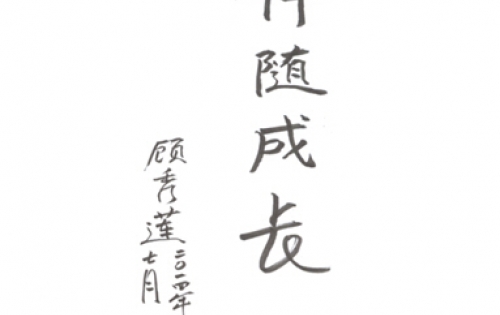 随成长
顾秀莲
二〇一四年
七月